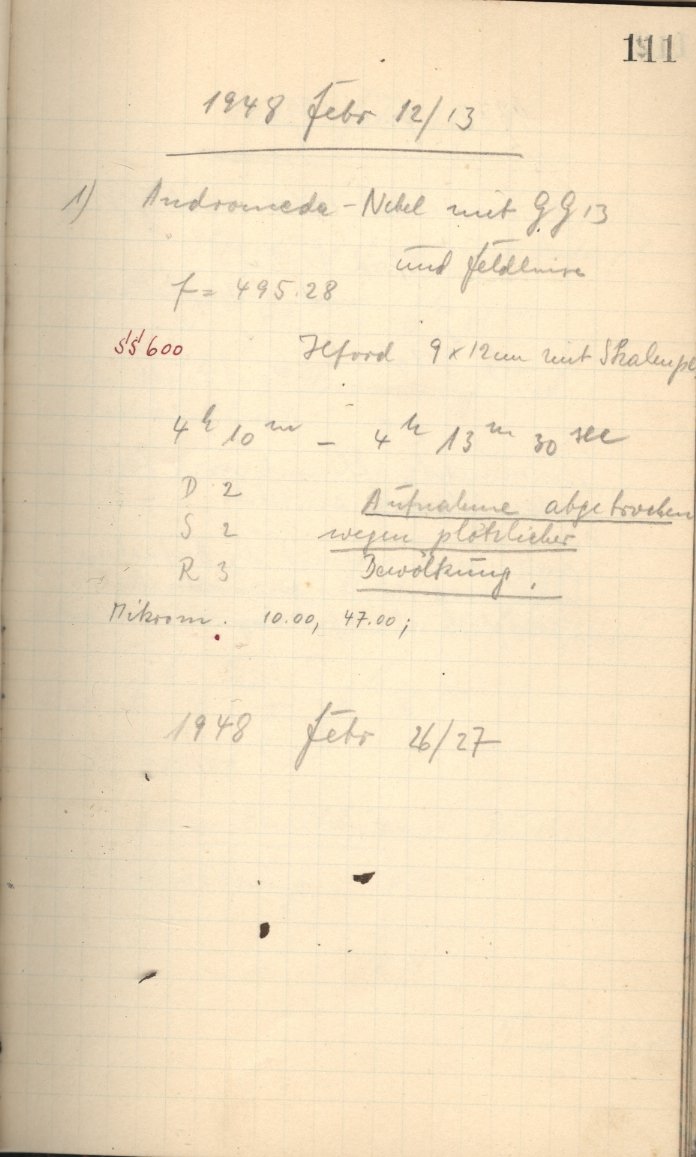 111
1948 Febr 12/13
1) Andromeda-Nebel mit GG 13
und Feldlinse
f = 495.28
SS 600 Ilford 9 x 12 cm mit
4h 10m - 4h 13m 30 sec
D 2
Aufnahme abgebrochen
S 2 wegen plötzlicher
R 3 Bewölkung.
Mikrom. 10.00, 47.00;
1948 Febr 26/27